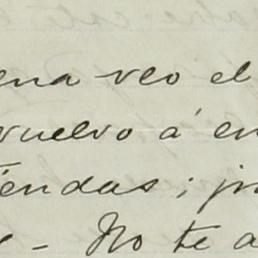 ena veo el
vuelvo á en
tiendas; p
- No te a